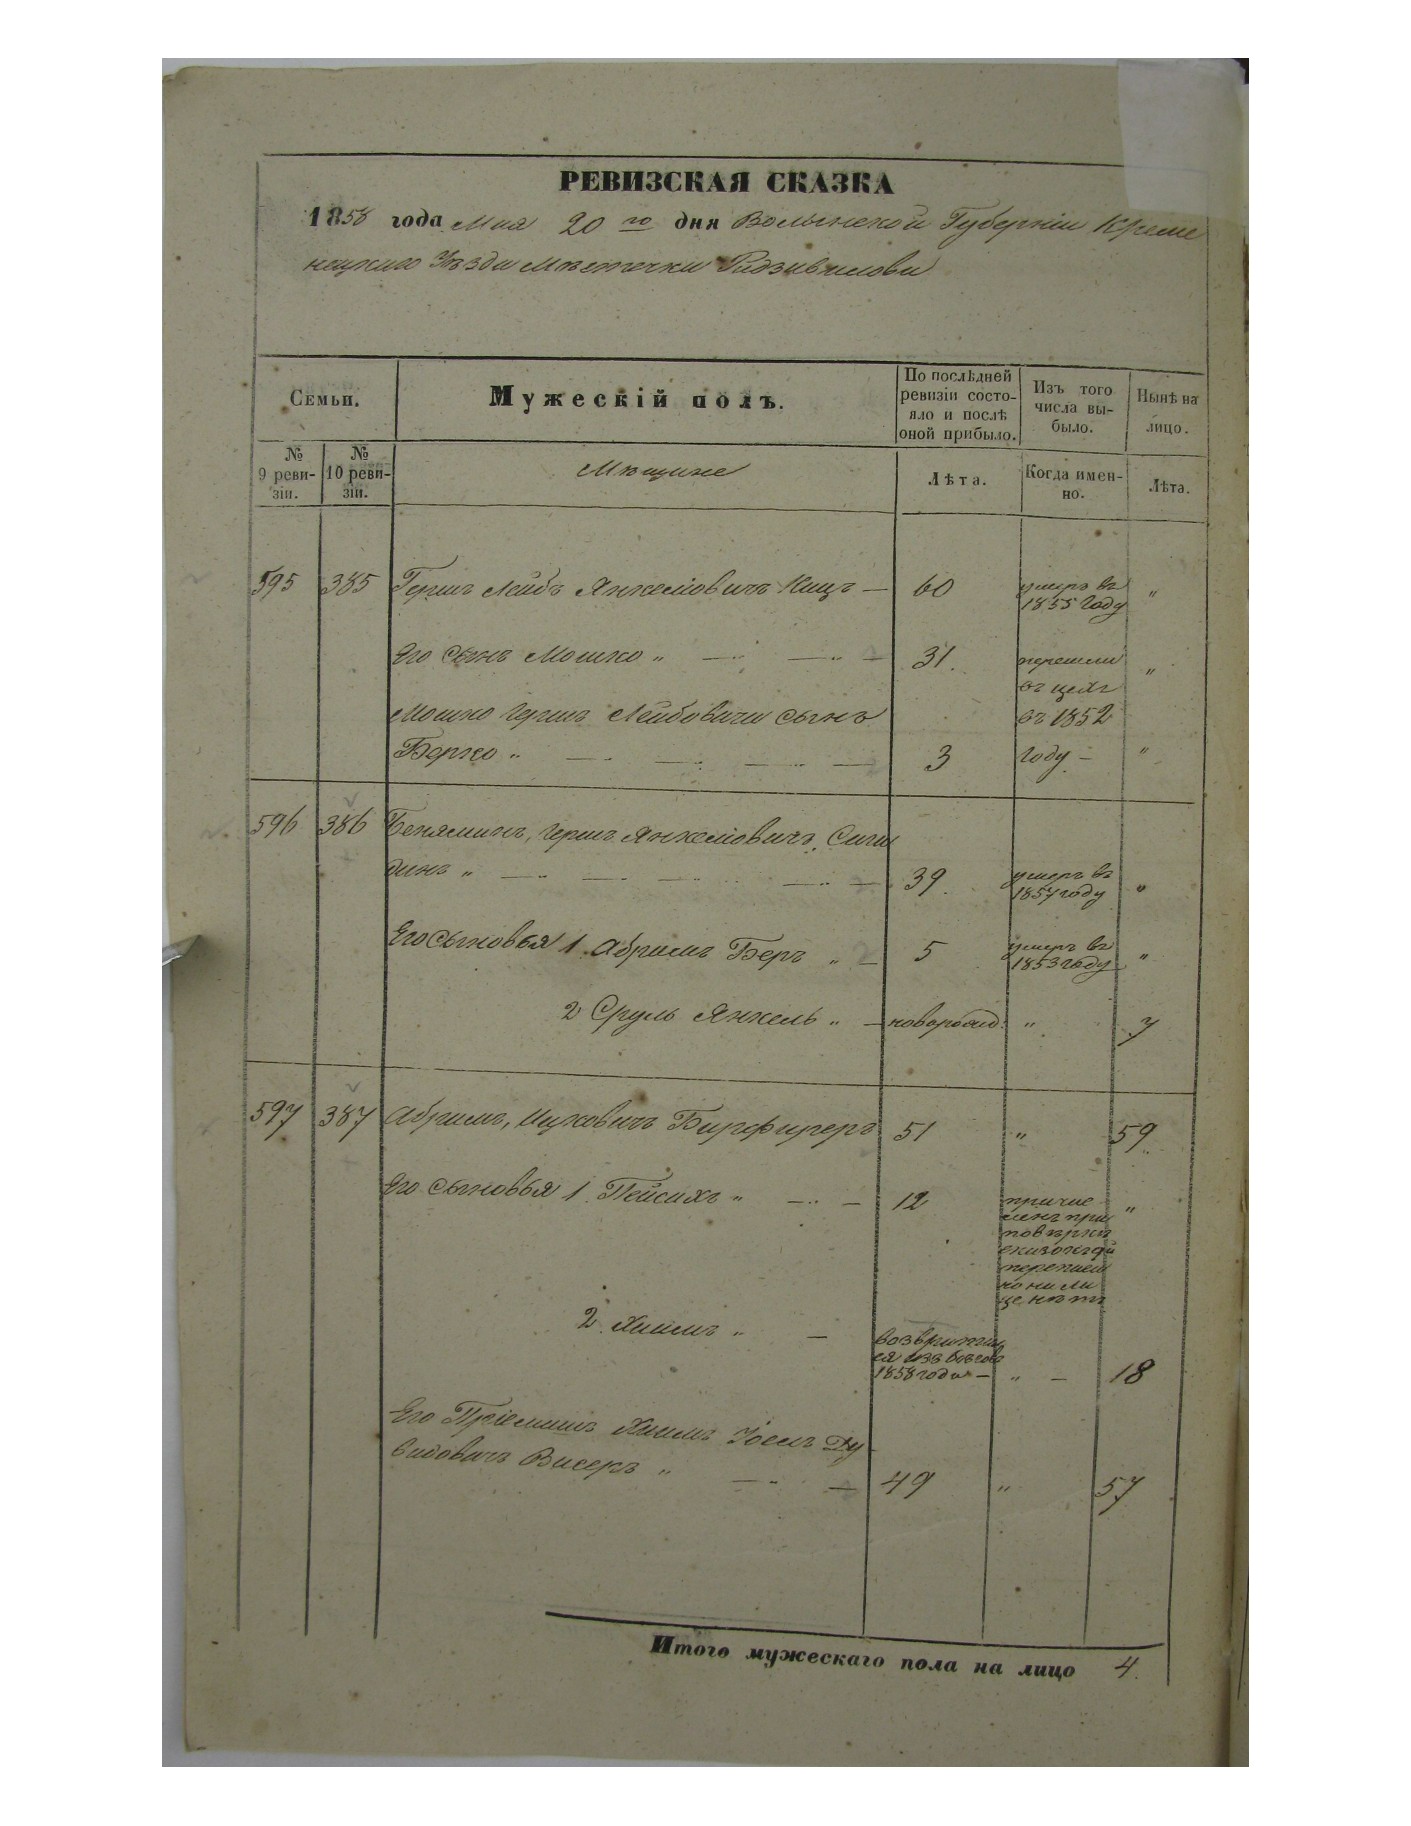 РЕВИЗСКАЯ СКАЗКА
1858 года Мая 20 го дня Волынской Губерніи Креме
нецкаго Уѣзда мѣстечка Радзивилова
Семьи.
Мужескій полъ.
По послѣдней
ревизіи состо-
яло и послѣ
оной прибыло.
Изъ того
числа вы-
было.
Нынѣ на
лицо.
№
9 реви-
зіи.
№
10 реви-
зіи.
Мѣщане
Лѣта.
Когда имен-
но.
Лѣта.
595 385 Герш Лейбъ Янкеліовичъ Кац — 60 умеръ въ "
1855 Году
Его Сынъ Мошко " 31. перешли "
въ цехъ
Мошко Герш Лейбовича Сынъ въ 1852
Берко " 3 Году — "
596 386 Беняминъ, Герш Янкеліовичъ,
динъ " 39. умеръ въ "
1857 году
Его Сыновья 1. Абрамъ Беръ " — 5 умеръ въ "
1853 году
2 Сруль Янкель " — новорожд. " 7
597 387 Абрамъ, Ицковичъ 51 " 59.
Его Сыновья 1. Пейсахъ " 12 причис "
ленъ при
повѣркѣ
перепис
но на ли
це нѣтъ
2. Хаимъ " — возвратил
ся изъ бѣговъ
1858 года — " — 18
Его Пріемышъ Хаимъ Іосъ Да
видовичъ Висеръ " 49 " 57
Итого мужескаго пола на лицо 4.